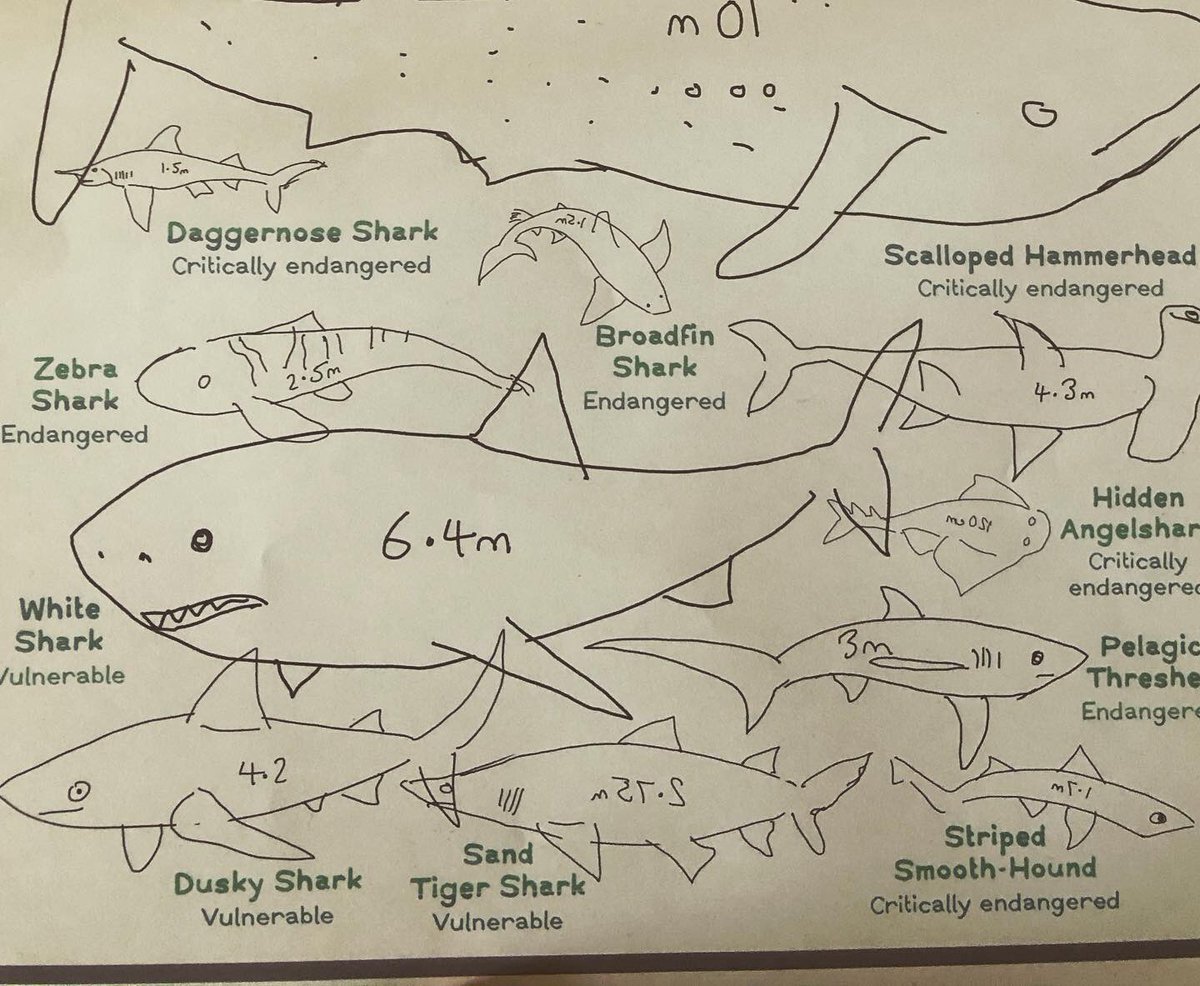 10 m
1.5m
Daggernose Shark
Critically endangered
1.5m
Broadfin
Shark
Endangered
Scalloped Hammerhead
Critically endangered
4.3m
Zebra
Shark
Endangered
2.5m
White
Shark
Vulnerable
6.4m
Hidden
Angelshar
Critically
endangere
Pelagic
Threshe
Endangere
3m
4.2
Dusky Shark
Vulnerable
2.75m
Sand
Tiger Shark
Vulnerable
1.7m
Striped
Smooth-Hound
Critically endangered